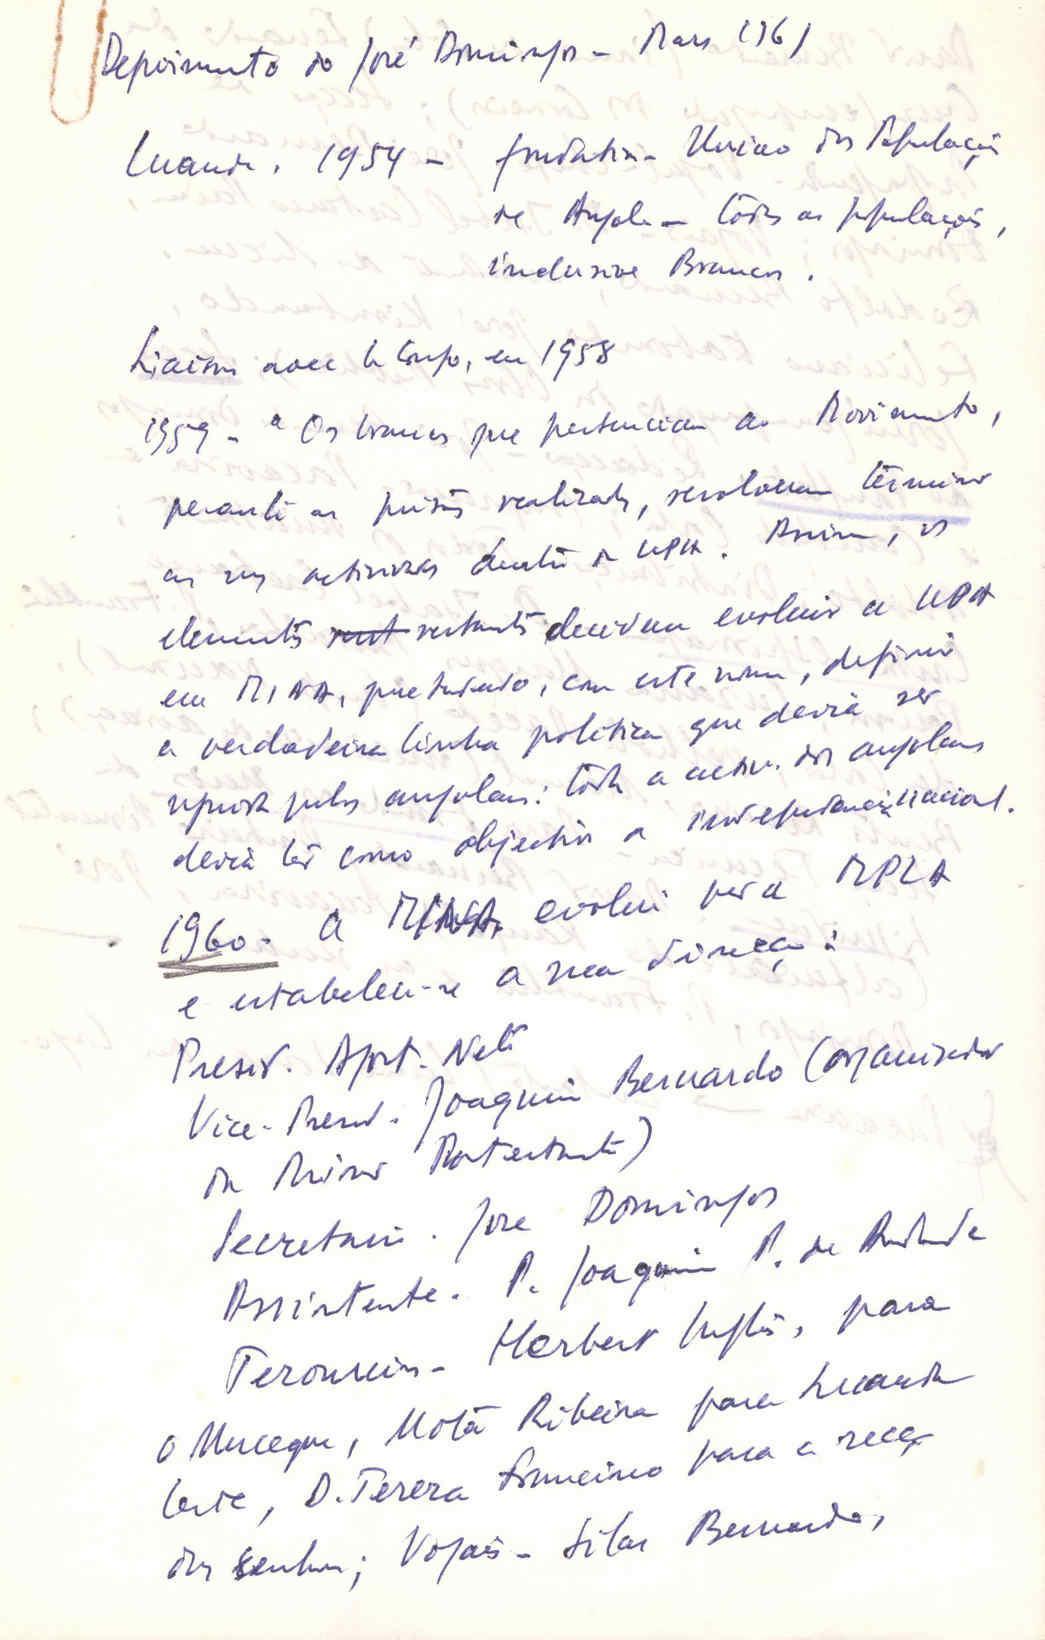 Depoimento do José Domingos - Mars 1961
Luanda. 1954 - fondation - União das Populações
de Angola - tôdas as populações,
inclusive Brancos.
Liaison avec le Congo, en 1958
1959 - "Os brancos que pertenciam ao Movimento,
perante as prisões realizadas, resolveram terminar
as suas actividades dentro da UPA. Assim, os
elementos rest restantes decidem evoluir a UPA
em MINA, pretendendo, com este nome, definir
a verdadeira linha política que devia ser
seguida pelos angolanos: tôda a activ. dos angolanos
devia ter como objectivo a independência nacional.
1960 - a MINA evolui para MPLA
e estabelece-se a sua direcção:
Presid. Agost. Neto
Vice-Presid. Joaquim Bernardo (organizador
da Missão Protestante)
Secretario. Jose Domingos
Assistente. P. Joaquim P. de Andrade
Tesoureiro - Herbert Inglês, para
o Museque, Mota Ribeira para Luanda
leste, D. Teresa Francisco para a secç.
das senhoras; Vogais - Silas Bernardo,